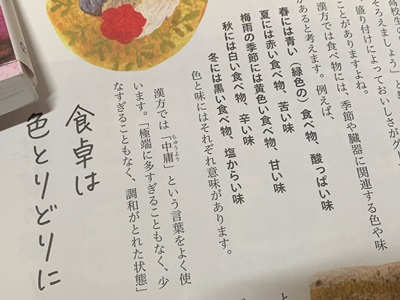 高校生の
そろえましょう」と
盛り付けによっておいしさがグー
ことがありますよね。
漢方では食べ物には、季節や臓器に関連する色や味
があると考えます。例えば、
春には青い（緑色の）食べ物、酸っぱい味
夏には赤い食べ物、苦い味
梅雨の季節には黄色い食べ物、甘い味
秋には白い食べ物、辛い味
冬には黒い食べ物、塩からい味
色と味にはそれぞれ意味があります。
漢方では「中庸」という言葉をよく使
ちゅうよう
います。「極端に多すぎることもなく、少
なすぎることもなく、調和がとれた状態」
食卓は
色とりどりに